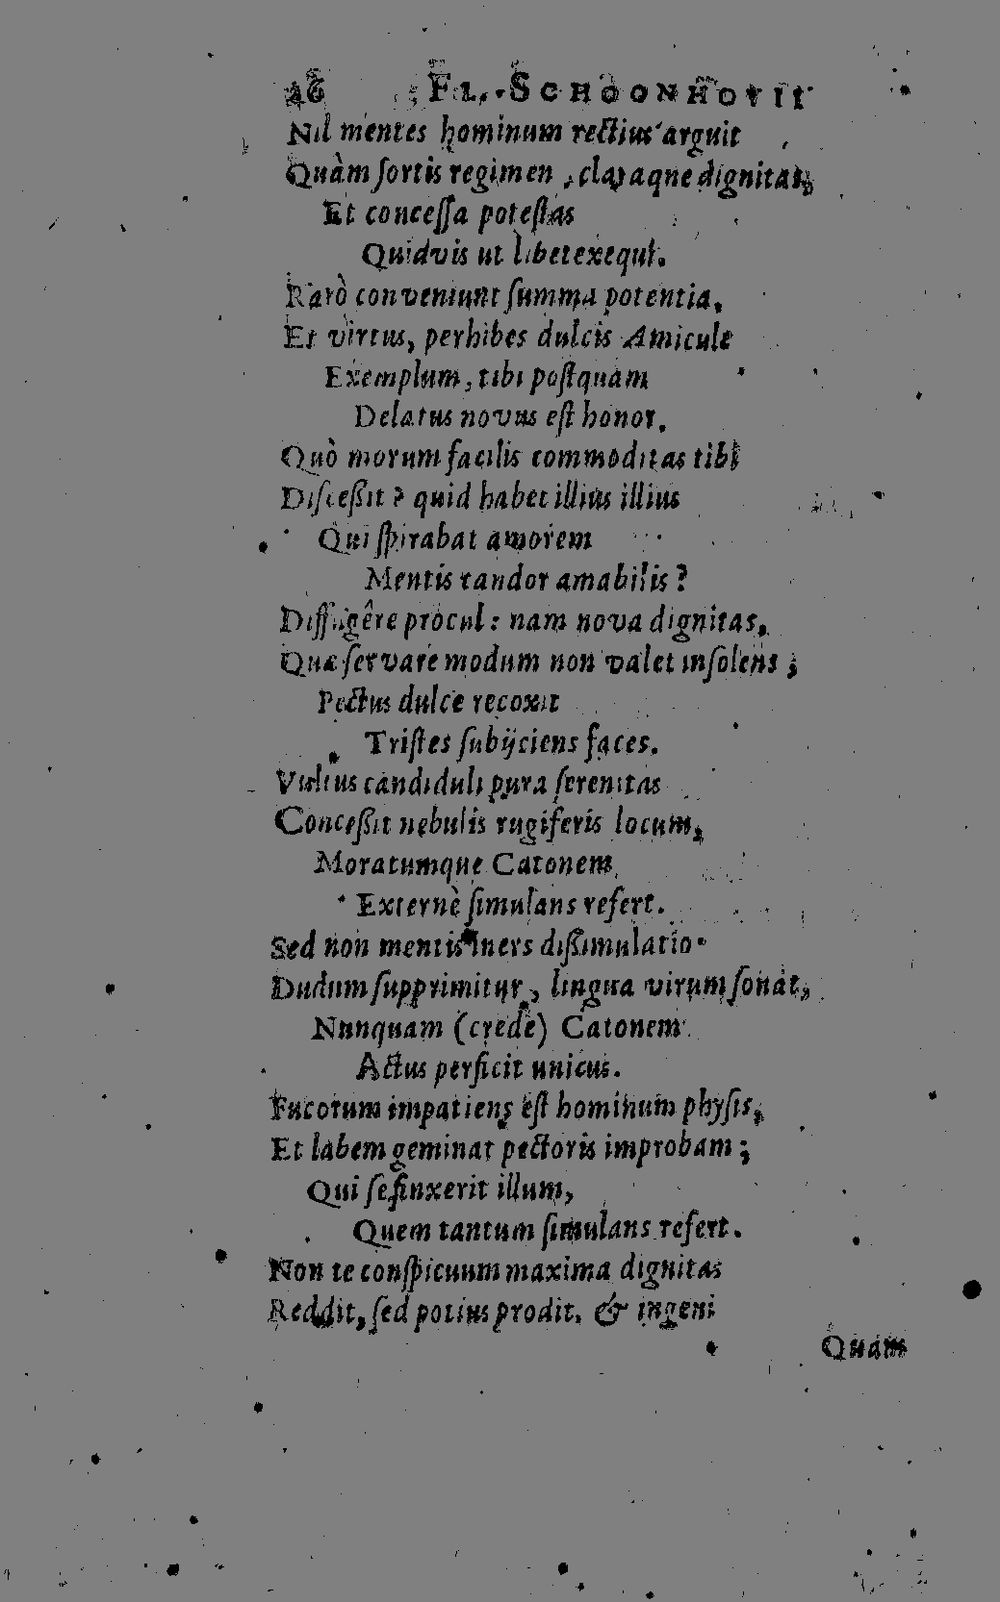 26 FL. SCHOONHOVII
Nil mentes hominum rectius arguit
Quàm sortis regimen, claraque dignitas,
Et concessa potestas
Quidvis ut libet exequi.
Rarò conveniunt summa potentia,
Et virtus, perhibes dulcis Amicule
Exemplum, tibi postquam
Delatus novus est honor.
Quò morum facilis commoditas tibi
Discessit? quid habet illius illius
Qui spirabat amorem
Mentis candor amabilis?
Diffugêre procul: nam nova dignitas,
Quæ servare modum non valet insolens;
Pectus dulce recoxit
Tristes subijciens faces.
Vultus candiduli pura serenitas
Concessit nebulis rugiferis locum,
Moratumque Catonem
Externè simulans refert.
Sed non mentis iners dissimulatio
Dudum supprimitur, lingua virum sonat,
Nunquam (crede) Catonem
Actus perficit unicus.
Fucorum impatiens est hominum physis,
Et labem geminat pectoris improbam;
Qui se finxerit illum,
Quem tantum simulans refert.
Non te conspicuum maxima dignitas
Reddit, sed potius prodit, & ingeni
Quam